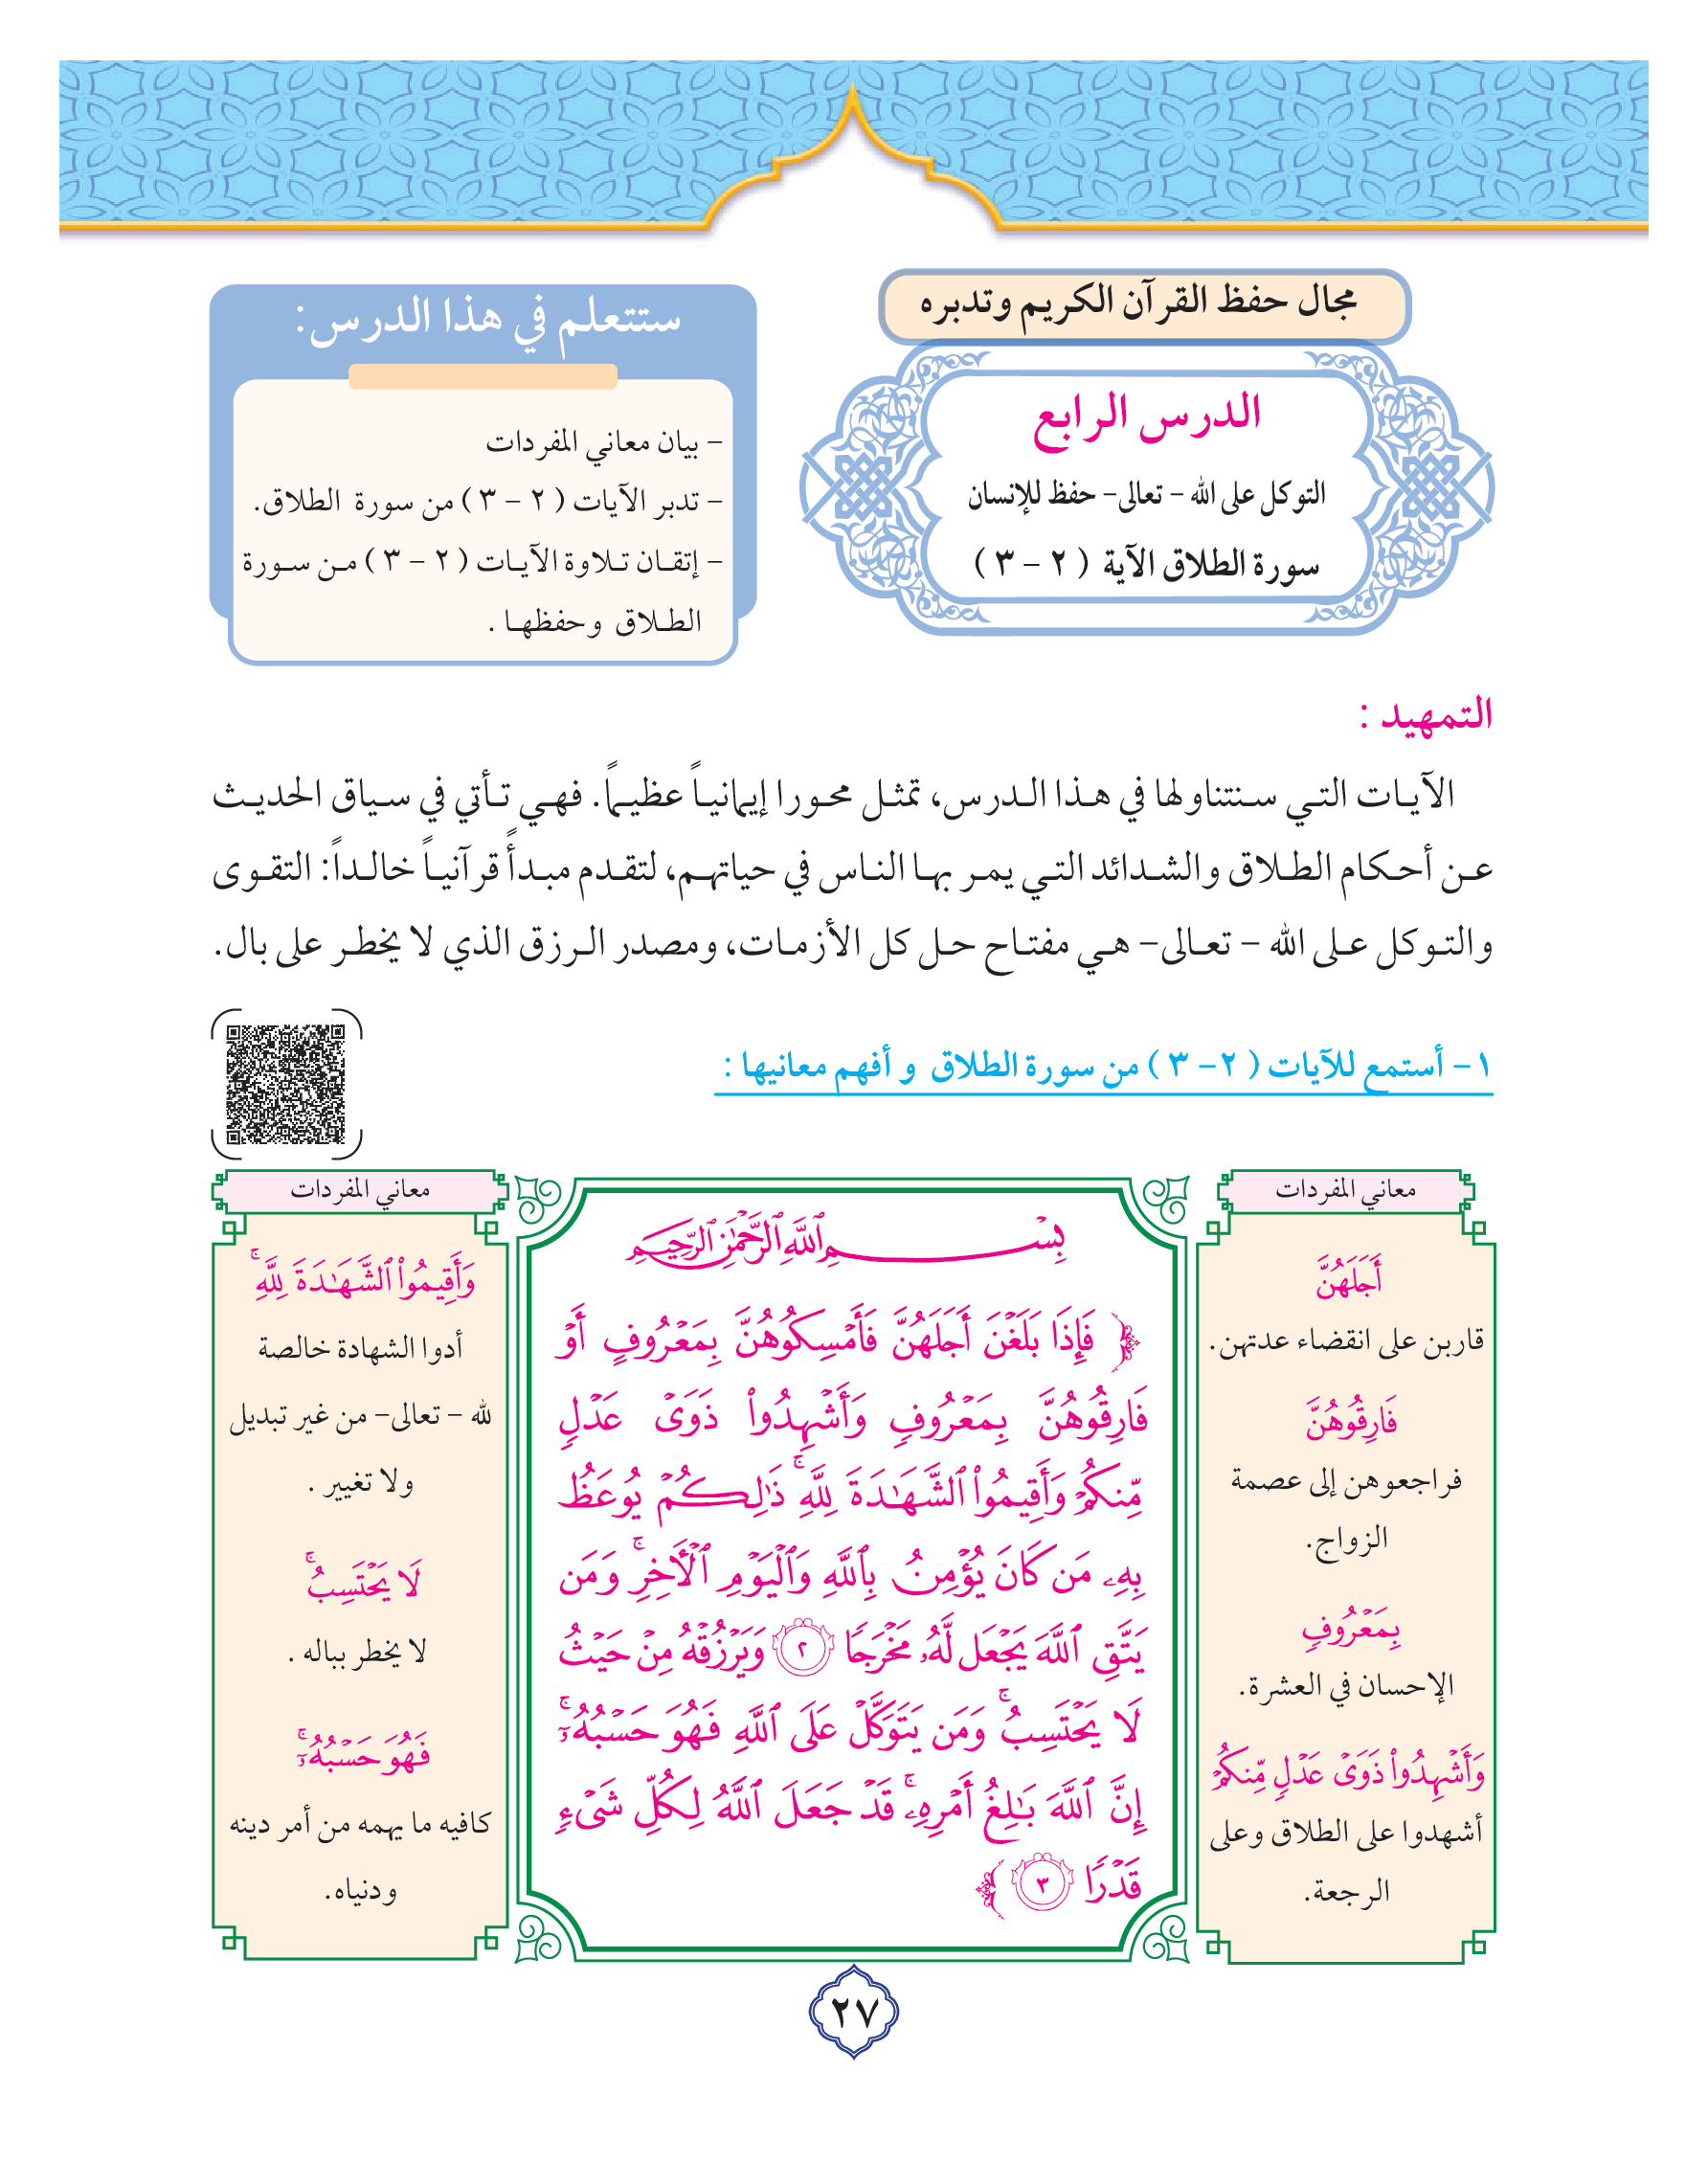 مجال حفظ القرآن الكريم وتدبره
الدرس الرابع
التوكل على الله – تعالى– حفظ للإنسان
سورة الطلاق الآية ( ٢ – ٣ )
ستتعلم في هذا الدرس:
– بيان معاني المفردات
– تدبر الآيات ( ٢ – ٣ ) من سورة الطلاق.
– إتقان تلاوة الآيات ( ٢ – ٣ ) من سورة
الطلاق وحفظها .
التمهيد :
الآيات التي سنتناولها في هذا الدرس، تمثل محورا إيمانياً عظيماً. فهي تأتي في سياق الحديث
عن أحكام الطلاق والشدائد التي يمر بها الناس في حياتهم، لتقدم مبدأً قرآنياً خالداً: التقوى
والتوكل على الله – تعالى– هي مفتاح حل كل الأزمات، ومصدر الرزق الذي لا يخطر على بال.
١– أستمع للآيات ( ٢– ٣ ) من سورة الطلاق و أفهم معانيها :
معاني المفردات
أَجَلَهُنَّ
قاربن على انقضاء عدتهن.
فَارِقُوهُنَّ
فراجعوهن إلى عصمة
الزواج.
بِمَعْرُوفٍ
الإحسان في العشرة.
وَأَشْهِدُوا۟ ذَوَىْ عَدْلٍ مِّنكُمْ
أشهدوا على الطلاق وعلى
الرجعة.
بِسْمِ ٱللَّهِ ٱلرَّحْمَٰنِ ٱلرَّحِيمِ
﴿ فَإِذَا بَلَغْنَ أَجَلَهُنَّ فَأَمْسِكُوهُنَّ بِمَعْرُوفٍ أَوْ
فَارِقُوهُنَّ بِمَعْرُوفٍ وَأَشْهِدُوا۟ ذَوَىْ عَدْلٍ
مِّنكُمْ وَأَقِيمُوا۟ ٱلشَّهَٰدَةَ لِلَّهِ ۚ ذَٰلِكُمْ يُوعَظُ
بِهِۦ مَن كَانَ يُؤْمِنُ بِٱللَّهِ وَٱلْيَوْمِ ٱلْـَٔاخِرِ ۚ وَمَن
يَتَّقِ ٱللَّهَ يَجْعَل لَّهُۥ مَخْرَجًا ٢ وَيَرْزُقْهُ مِنْ حَيْثُ
لَا يَحْتَسِبُ ۚ وَمَن يَتَوَكَّلْ عَلَى ٱللَّهِ فَهُوَ حَسْبُهُۥٓ ۚ
إِنَّ ٱللَّهَ بَٰلِغُ أَمْرِهِۦ ۚ قَدْ جَعَلَ ٱللَّهُ لِكُلِّ شَىْءٍ
قَدْرًا ٣ ﴾
معاني المفردات
وَأَقِيمُوا۟ ٱلشَّهَٰدَةَ لِلَّهِ ۚ
أدوا الشهادة خالصة
لله – تعالى– من غير تبديل
ولا تغيير .
لَا يَحْتَسِبُ ۚ
لا يخطر بباله .
فَهُوَ حَسْبُهُۥٓ ۚ
كافيه ما يهمه من أمر دينه
ودنياه.
٢٧